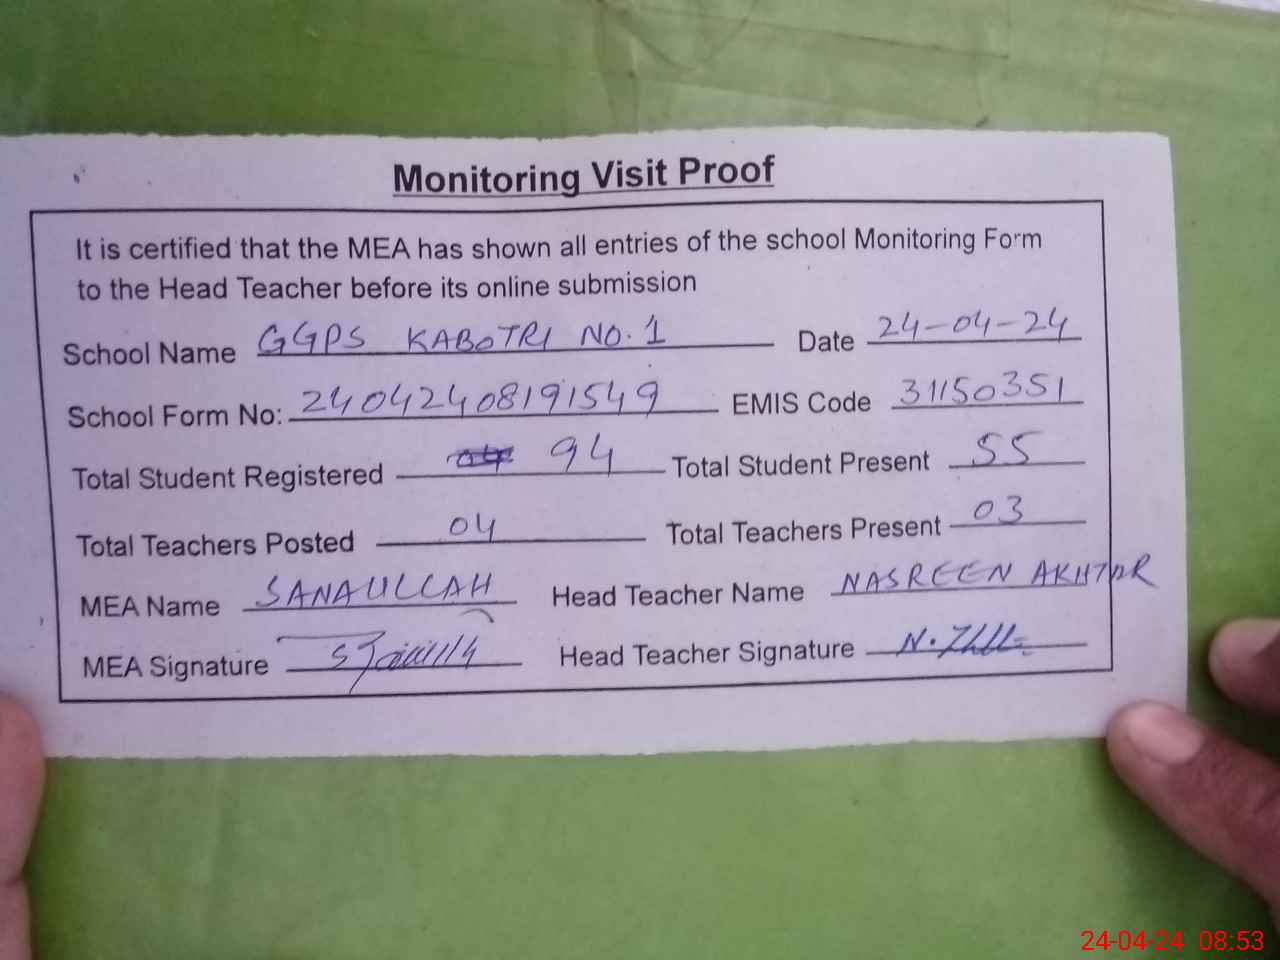 Monitoring Visit Proof
It is certified that the MEA has shown all entries of the school Monitoring Form
to the Head Teacher before its online submission
School Name GGPS KABOTRI NO.1 Date 24-04-24
School Form No: 24042408191549 EMIS Code 31150351
Total Student Registered 94 Total Student Present 55
Total Teachers Posted 04 Total Teachers Present 03
MEA Name SANAULLAH Head Teacher Name NASREEN AKHTAR
MEA Signature Head Teacher Signature
24-04-24 08:53